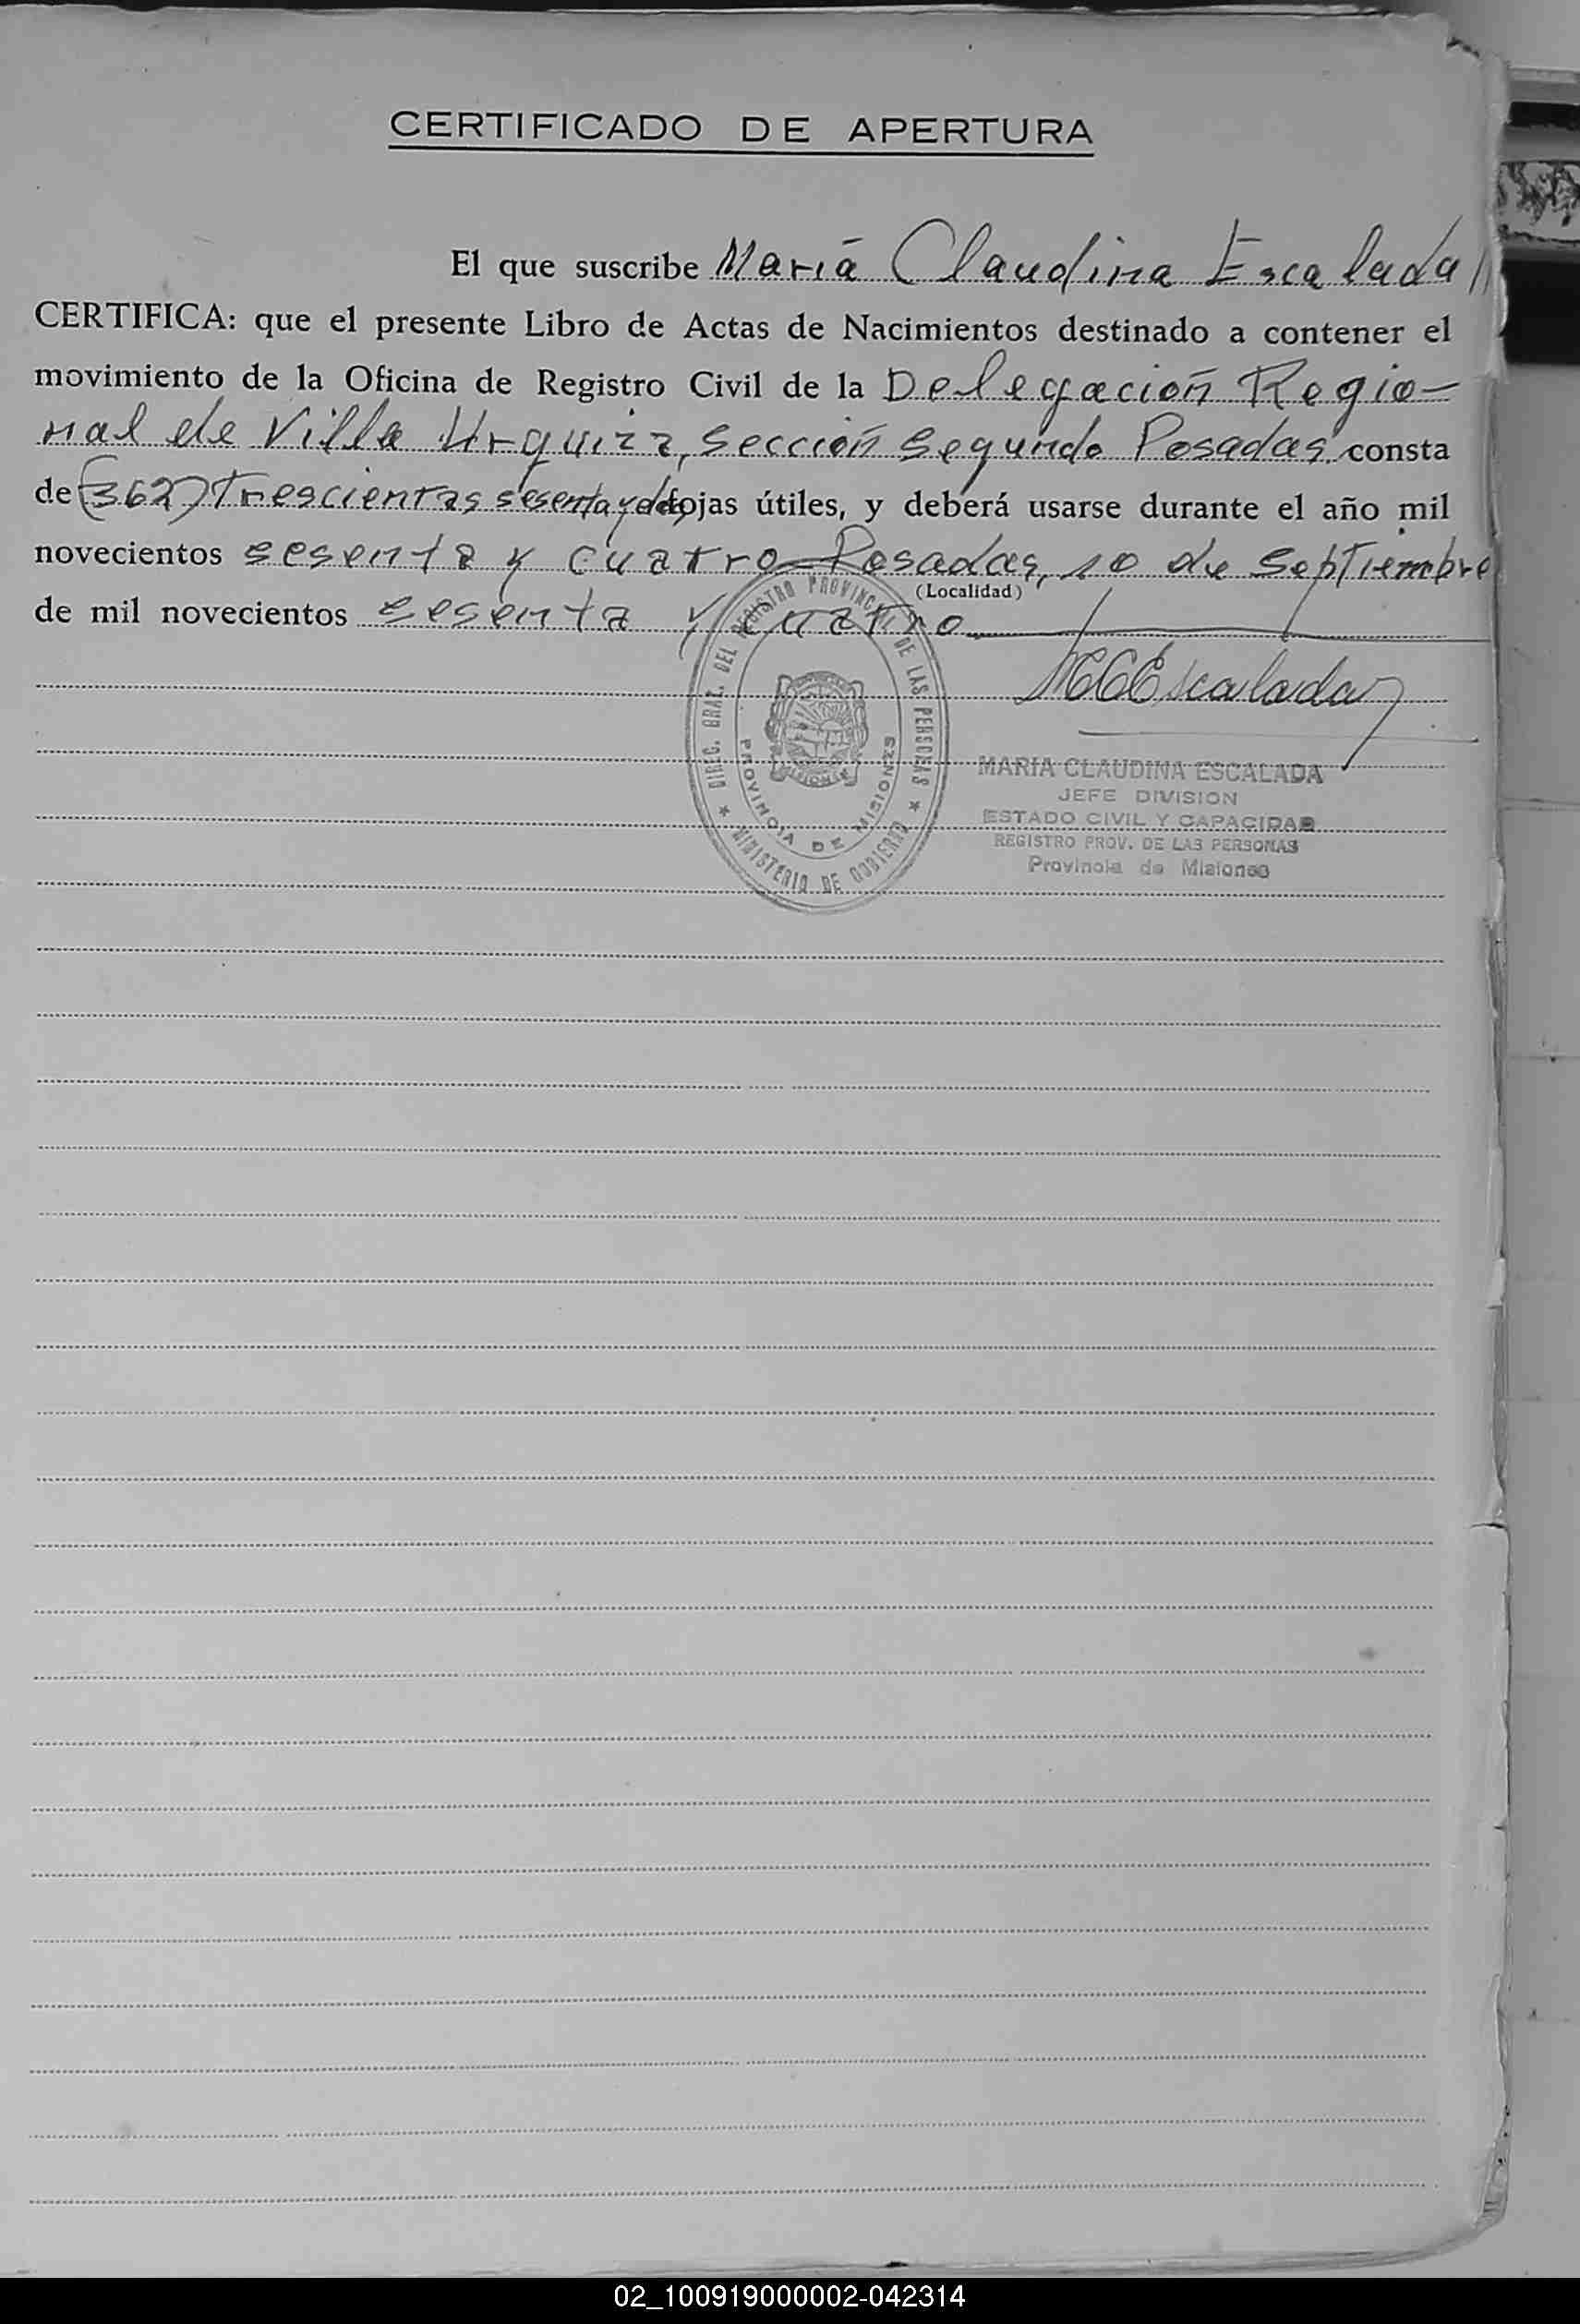 CERTIFICADO DE APERTURA
El que suscribe María Claudina Escalada
CERTIFICA: que el presente Libro de Actas de Nacimientos destinado a contener el
movimiento de la Oficina de Registro Civil de la Delegación Regio-
nal de Villa Urquiza, Sección Segunda Posadas consta
de (362) Trescientas sesenta y dos fojas útiles, y deberá usarse durante el año mil
novecientos sesenta y cuatro - Posadas, 10 de Septiembre
(Localidad)
de mil novecientos sesenta y cuatro
MCEscalada
DIREC. GRAL. DEL REGISTRO PROVINCIAL DE LAS PERSONAS
PROVINCIA DE MISIONES
MINISTERIO DE GOBIERNO
MARIA CLAUDINA ESCALADA
JEFE DIVISION
ESTADO CIVIL Y CAPACIDAD
REGISTRO PROV. DE LAS PERSONAS
Provincia de Misiones
02_100919000002-042314